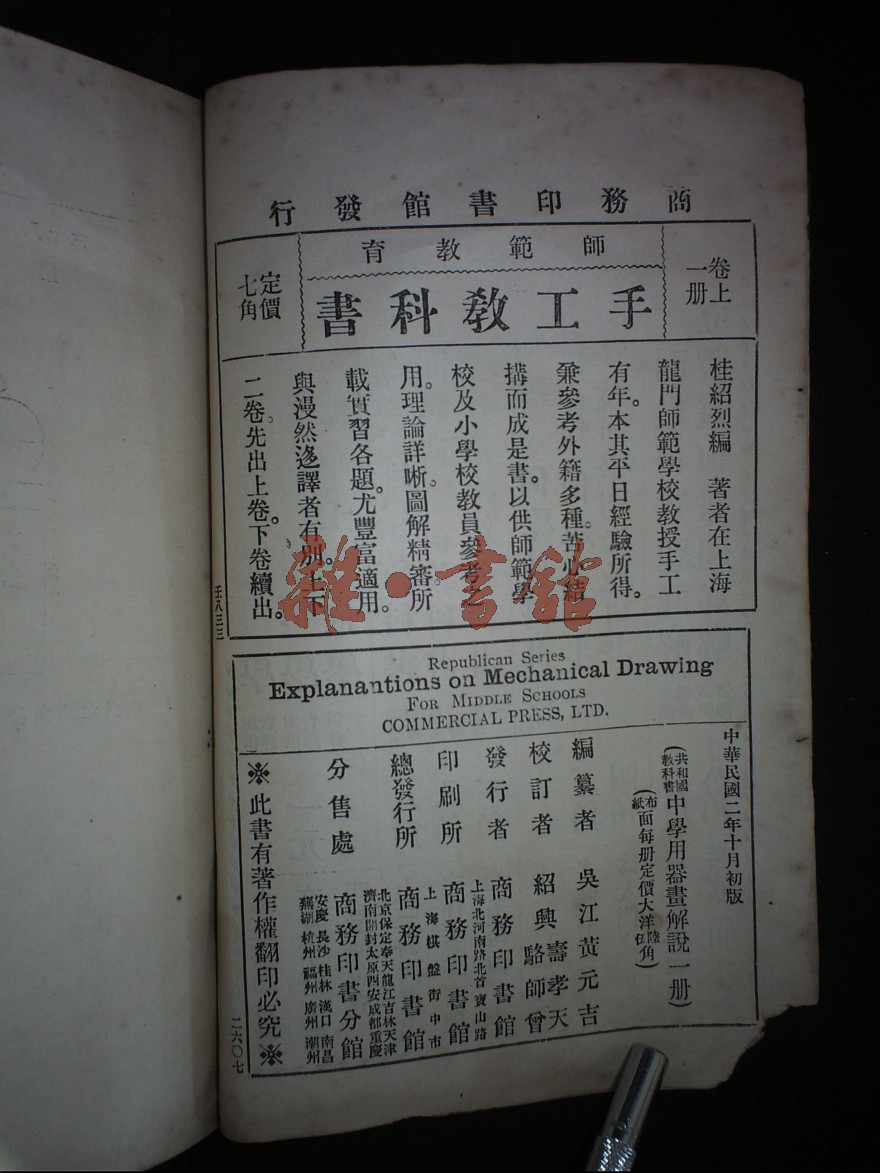 商務印書館發行
卷上
一册
師範教育
手工教科書
定價
七角
桂紹烈編　著者在上海
龍門師範學校教授手工
有年。本其平日經驗所得。
兼參考外籍多種。苦心結
搆而成是書。以供師範學
校及小學校教員參考之
用。理論詳晰。圖解精審。所
載實習各題。尤豐富適用。
與漫然迻譯者有別。上下
二卷。先出上卷。下卷續出。
壬八三三
雜·書館
Republican Series
Explanantions on Mechanical Drawing
FOR MIDDLE SCHOOLS
COMMERCIAL PRESS, LTD.
中華民國二年十月初版
(共和國教科書中學用器畫解說一册)
(布面每册定價大洋陸角)
(紙面每册定價大洋伍角)
編纂者　吳江黃元吉
校訂者　紹興壽孝天　駱師曾
發行者　商務印書館
上海北河南路北首寶山路
印刷所　商務印書館
上海棋盤街中市
總發行所　商務印書館
北京保定奉天龍江吉林天津
濟南開封太原西安成都重慶
分售處　商務印書分館
安慶長沙桂林漢口南昌
蕪湖杭州福州廣州潮州
※此書有著作權翻印必究※
二六〇七